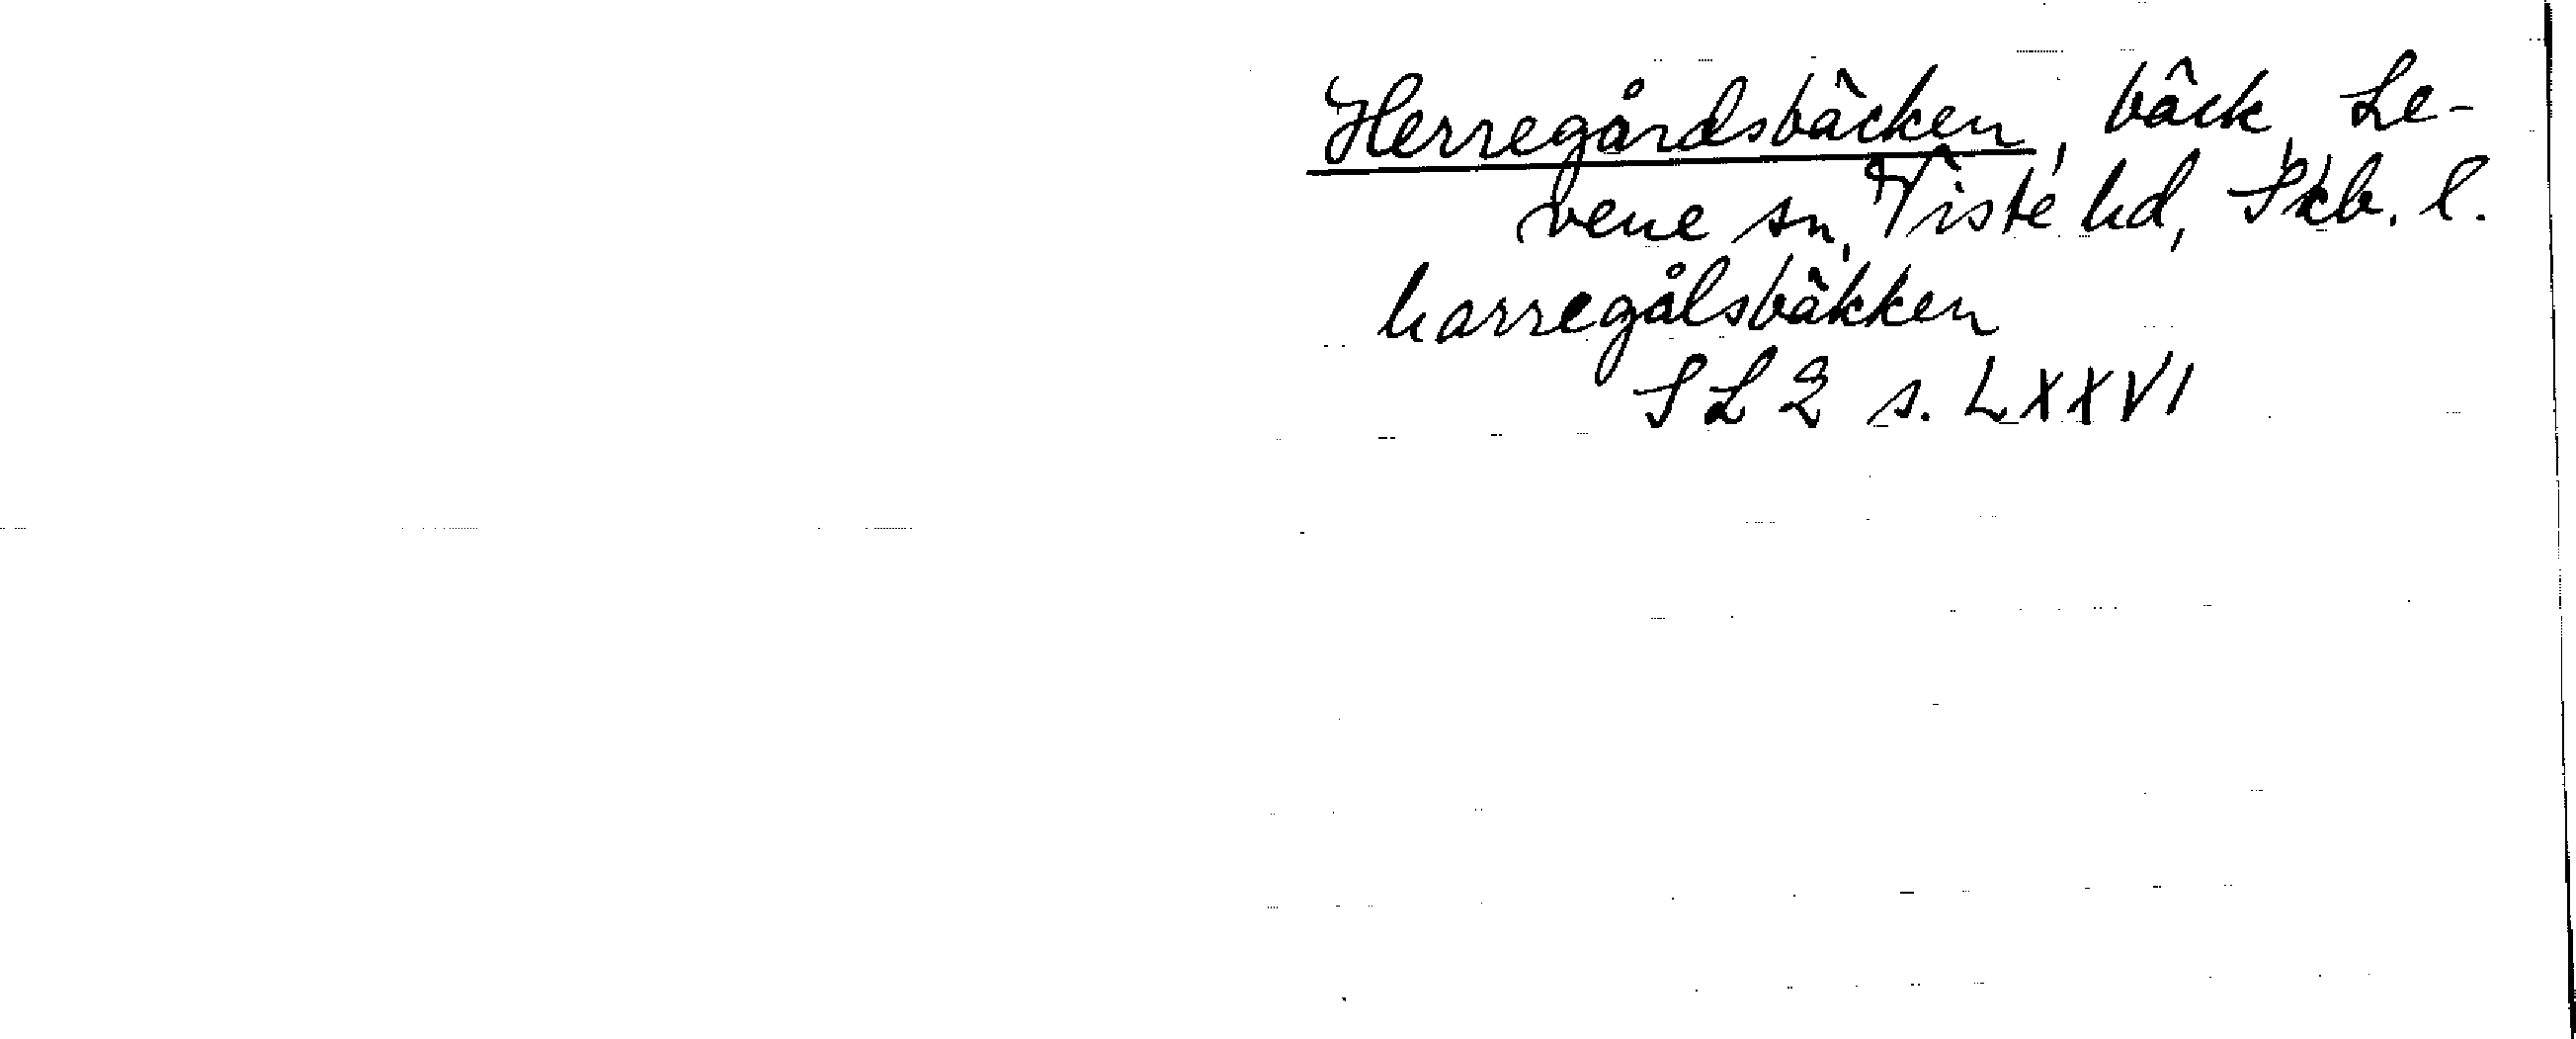 Herregårdsbäcken, bäck, Le-
vene sn, Viste hd, Skb. l.
harregålsbäkken
SL 2 s. LXXVI